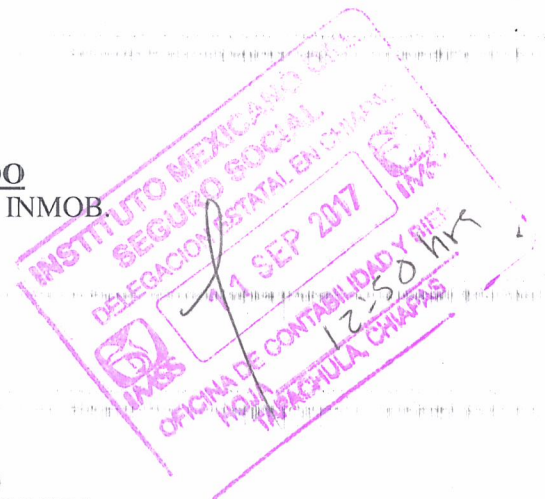 DO
INMOB.
INSTITUTO MEXICANO DEL
SEGURO SOCIAL
DELEGACION ESTATAL EN CHIAPAS
IMSS
SEP 2017
IMSS
OFICINA DE CONTABILIDAD Y
12-50 hrs
HOJA
TAPACHULA, CHIAPAS